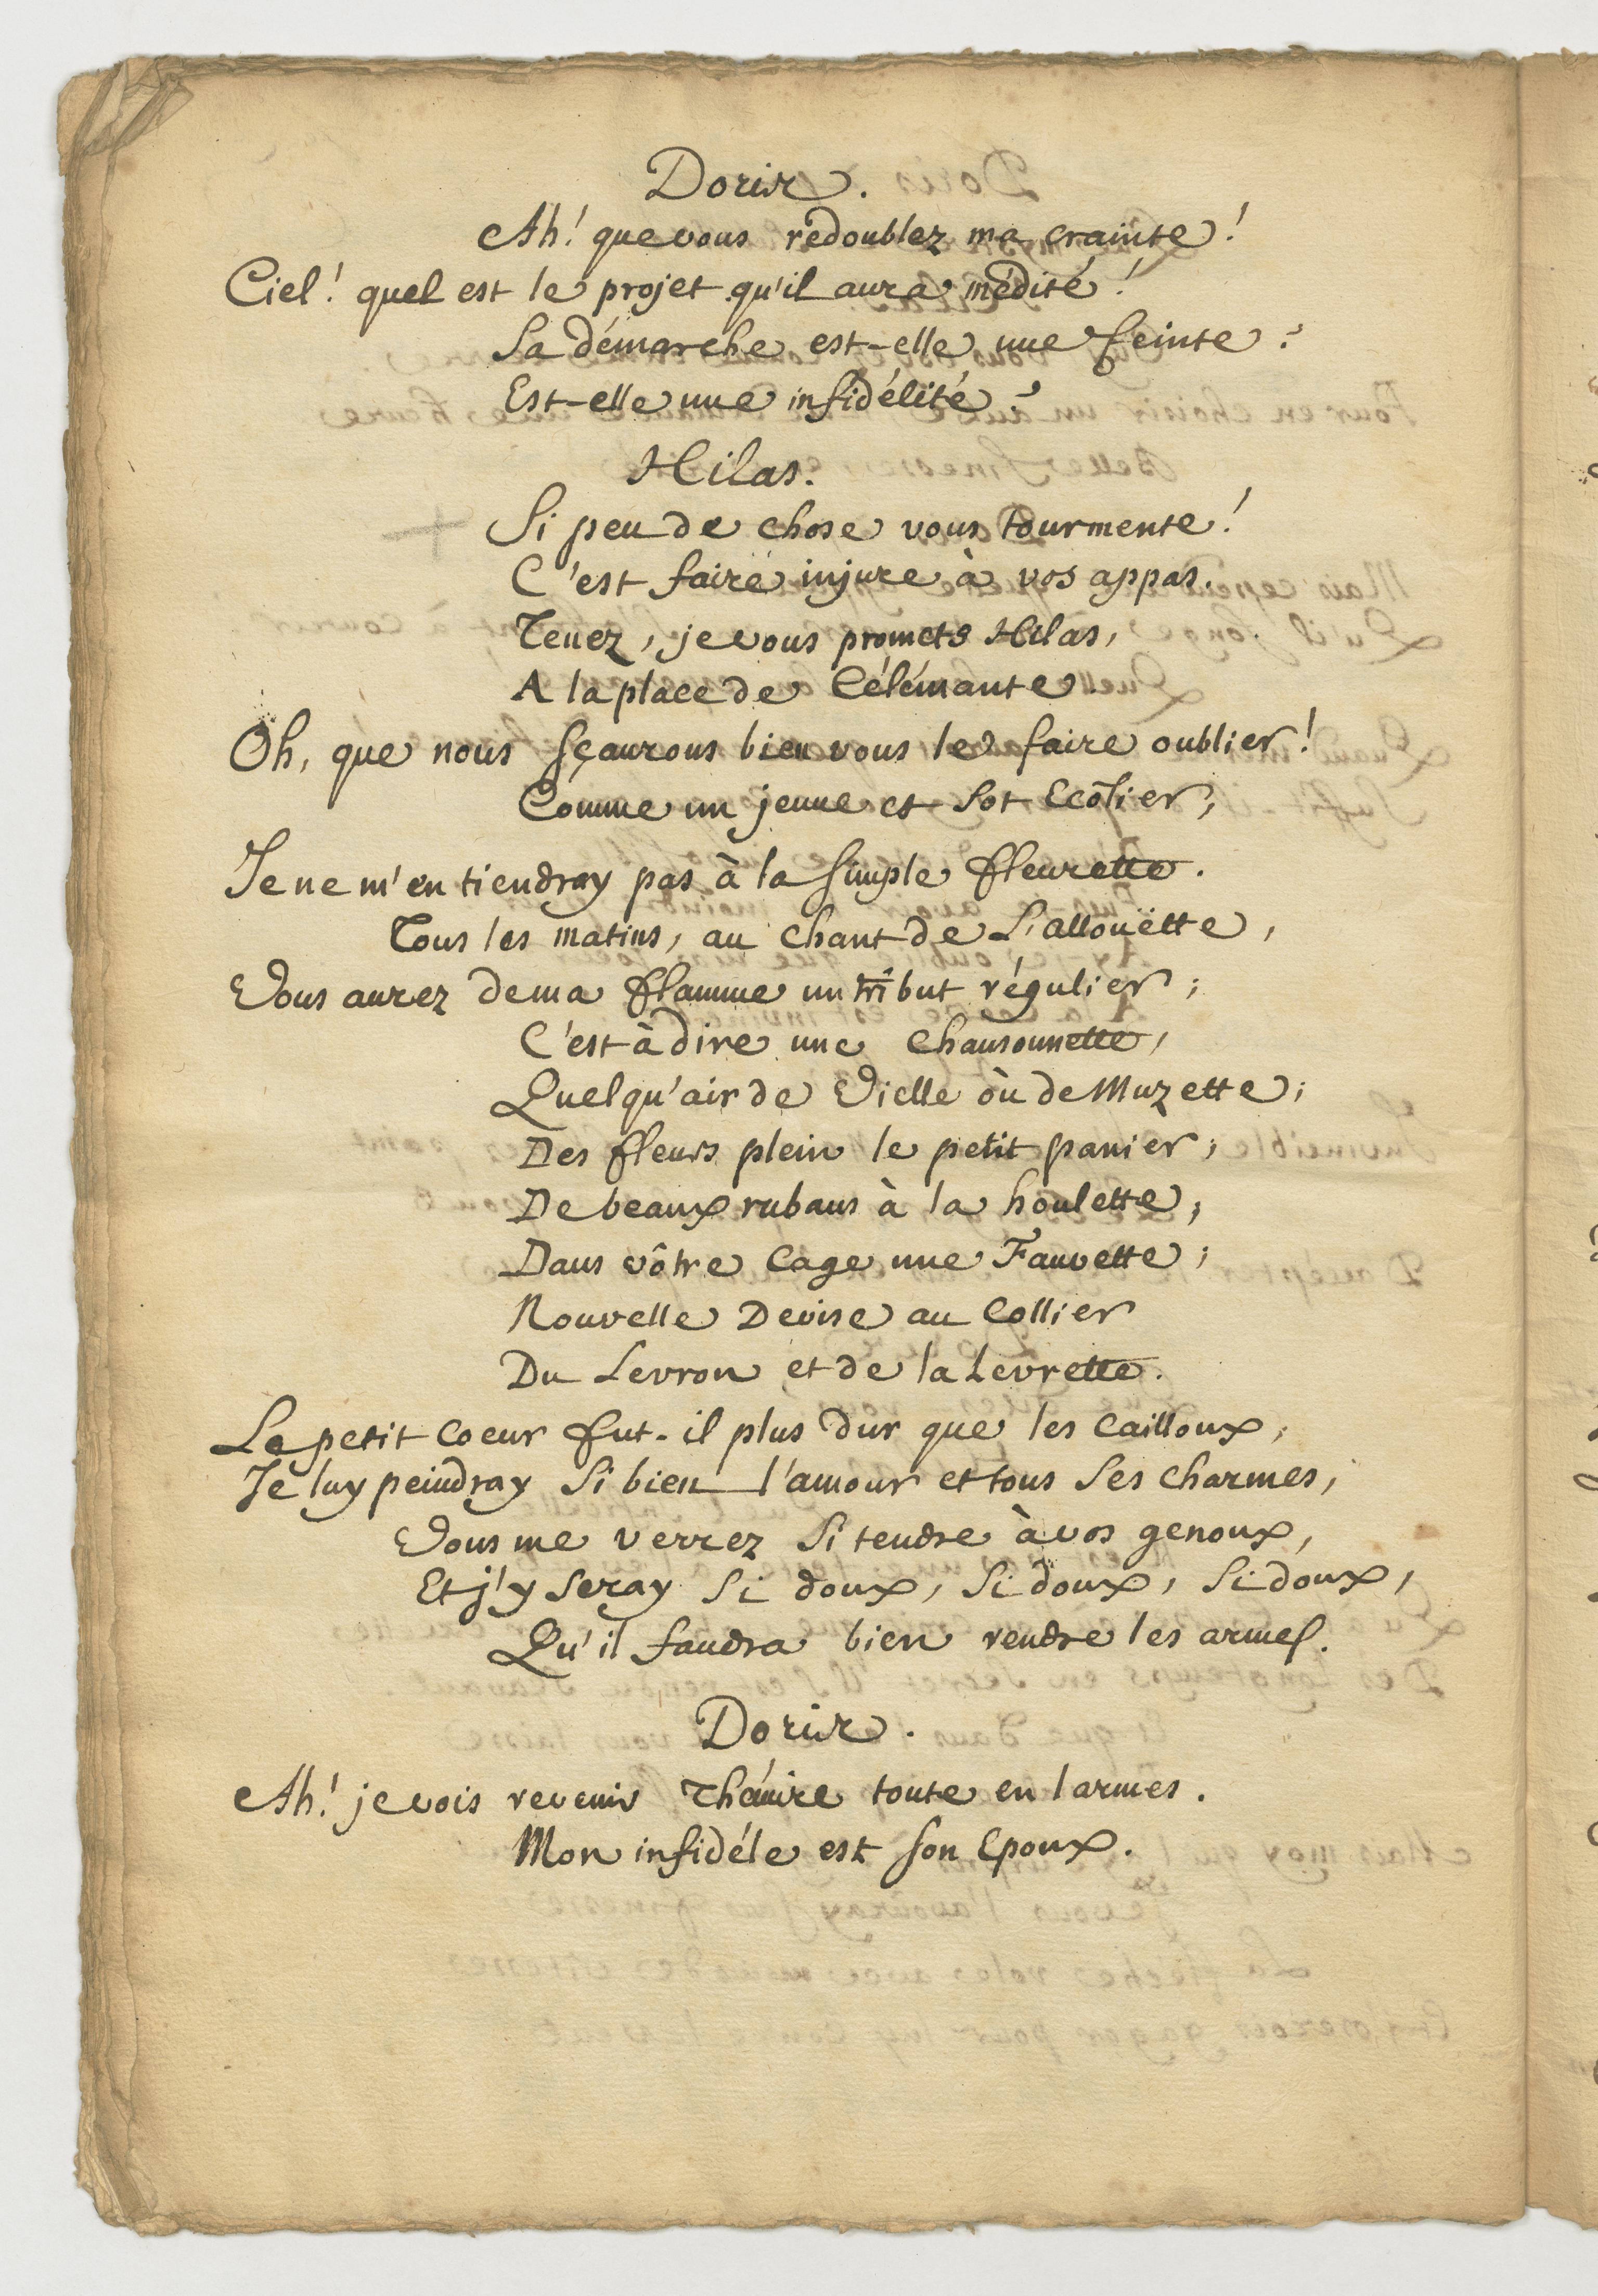 Doris.
Ah! que vous redoublez ma crainte!
Ciel! quel est le projet qu'il aura médité!
Sa démarche est-elle une feinte?
Est-elle une infidélité?
Hilas.
Si peu de chose vous tourmente!
C'est faire injure à vos appas.
Tenez, je vous promets Hilas,
A la place de Célémante
Oh, que nous sçaurons bien vous le faire oublier!
Comme un jeune et sot Ecôlier,
Je ne m'en tiendray pas à la simple fleurette.
Tous les matins, au chant de L'allouëtte,
Vous aurez de ma flamme un tribut régulier;
C'est à dire une Chansonnette,
Quelqu'air de Vielle où de Muzette;
Des fleurs plein le petit panier;
De beaux rubans à la houlette;
Dans vôtre Cage une Fauvette;
Nouvelle Devise au Collier
Du Levron et de la Levrette.
Le petit Coeur fut-il plus dur que les Cailloux,
Je luy peindray si bien l'amour et tous ses Charmes,
Vous me verrez si tendre à vos genoux,
Et j'y seray si doux, si doux, si doux,
Qu'il faudra bien rendre les armes.
Doris.
Ah! je vois revenir Thamire toute en larmes.
Mon infidéle est son Epoux.